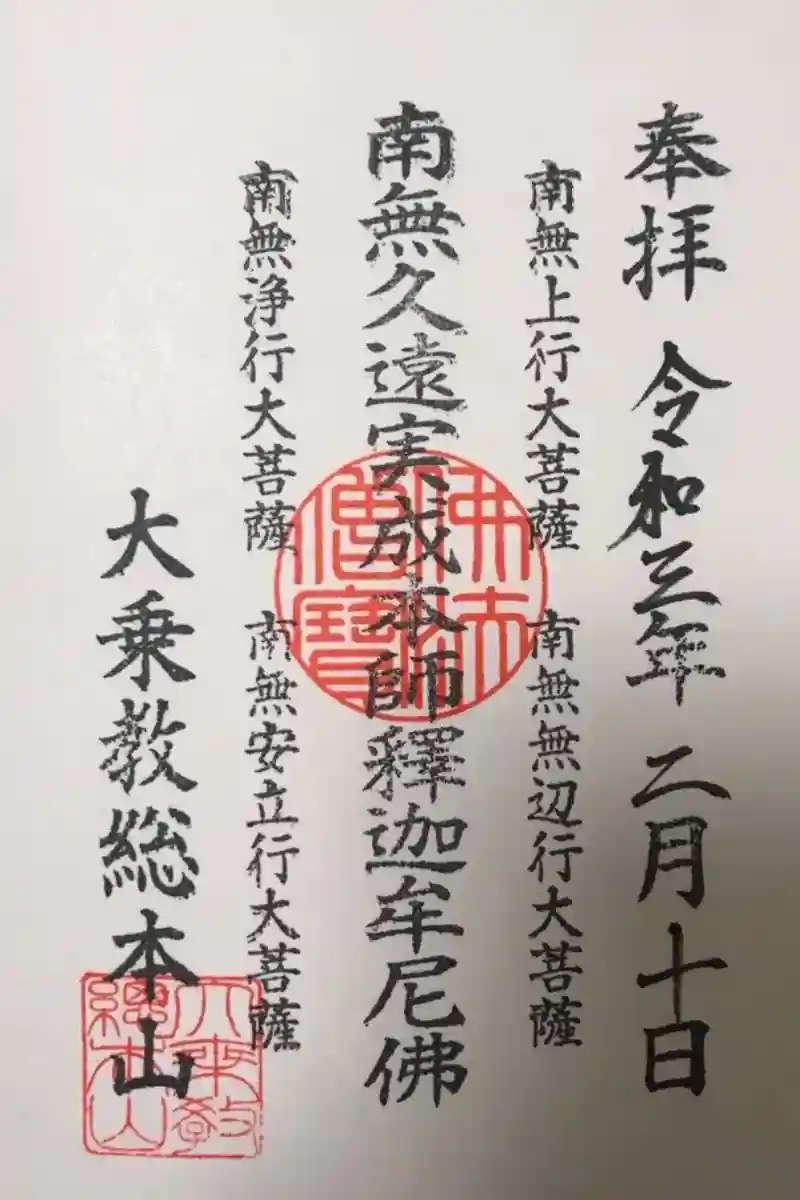 奉拝 令和三年 二月十日
南無上行大菩薩 南無無辺行大菩薩
南無久遠実成本師釋迦牟尼佛
南無浄行大菩薩 南無安立行大菩薩
大乗教総本山
佛法僧寶
大乗教總本山